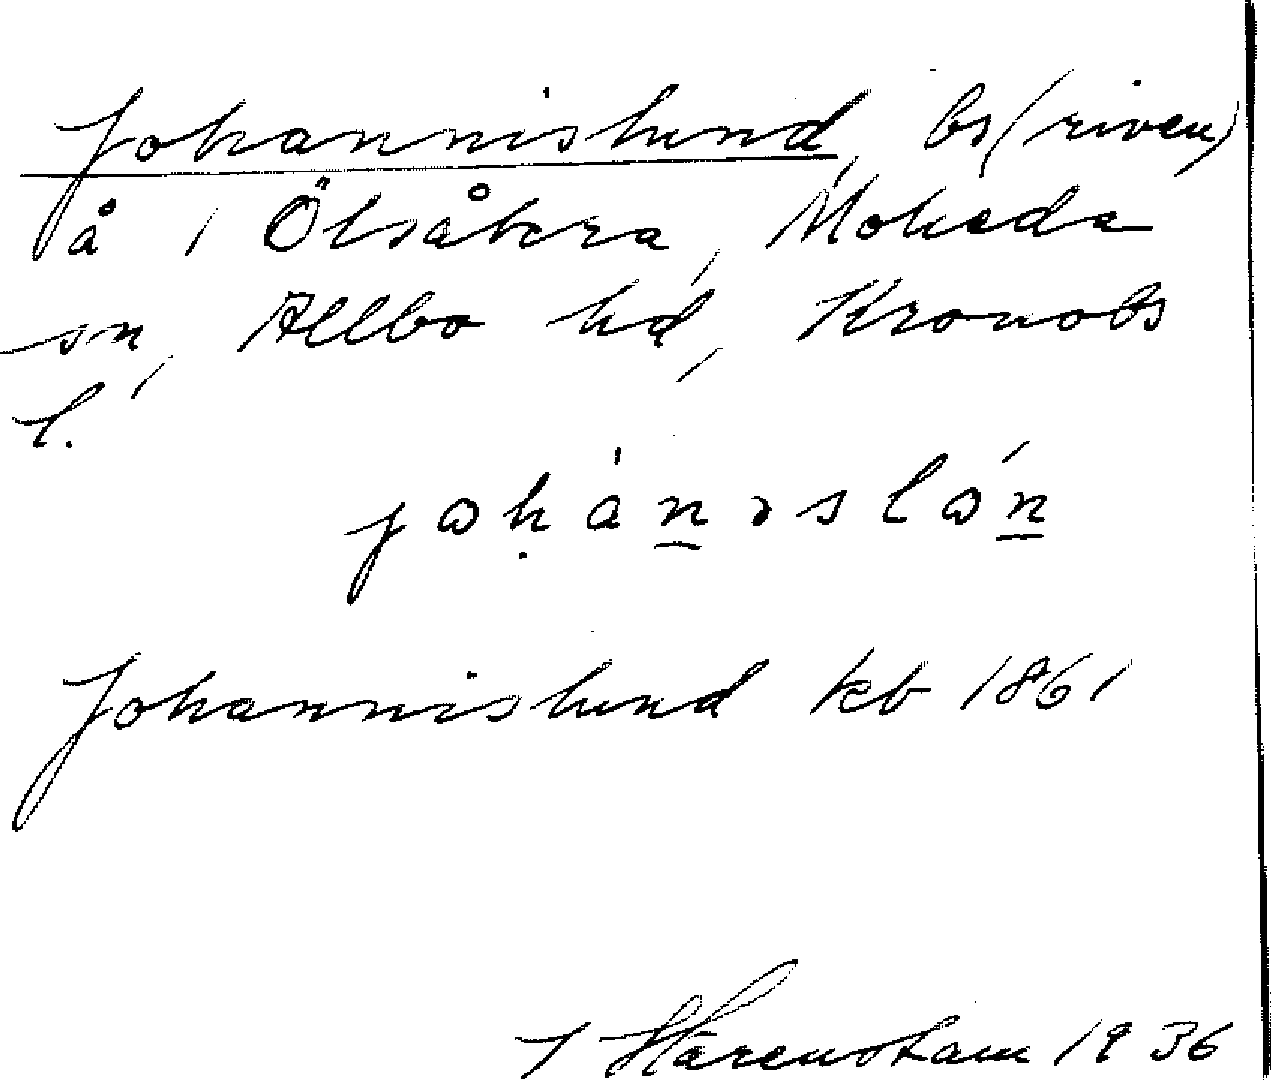 Johannislund, bs (riven)
å 1 Ölsåkra, Moheda
sn, Allbo hd, Kronobs
l.
Johannislund kb 1861
1936